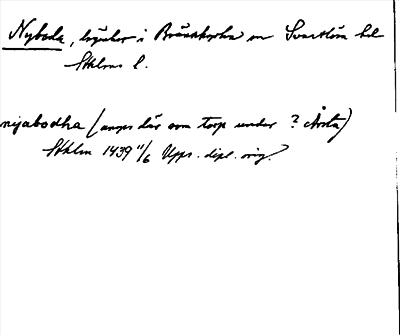 Nyboda, lägenher i Brännkyrka sn Svartlösa hd
Sthlms l.
nyabodha (anges där som torp under ? Årsta)
Sthlm 1439 11/6 Upps. dipl. orig.